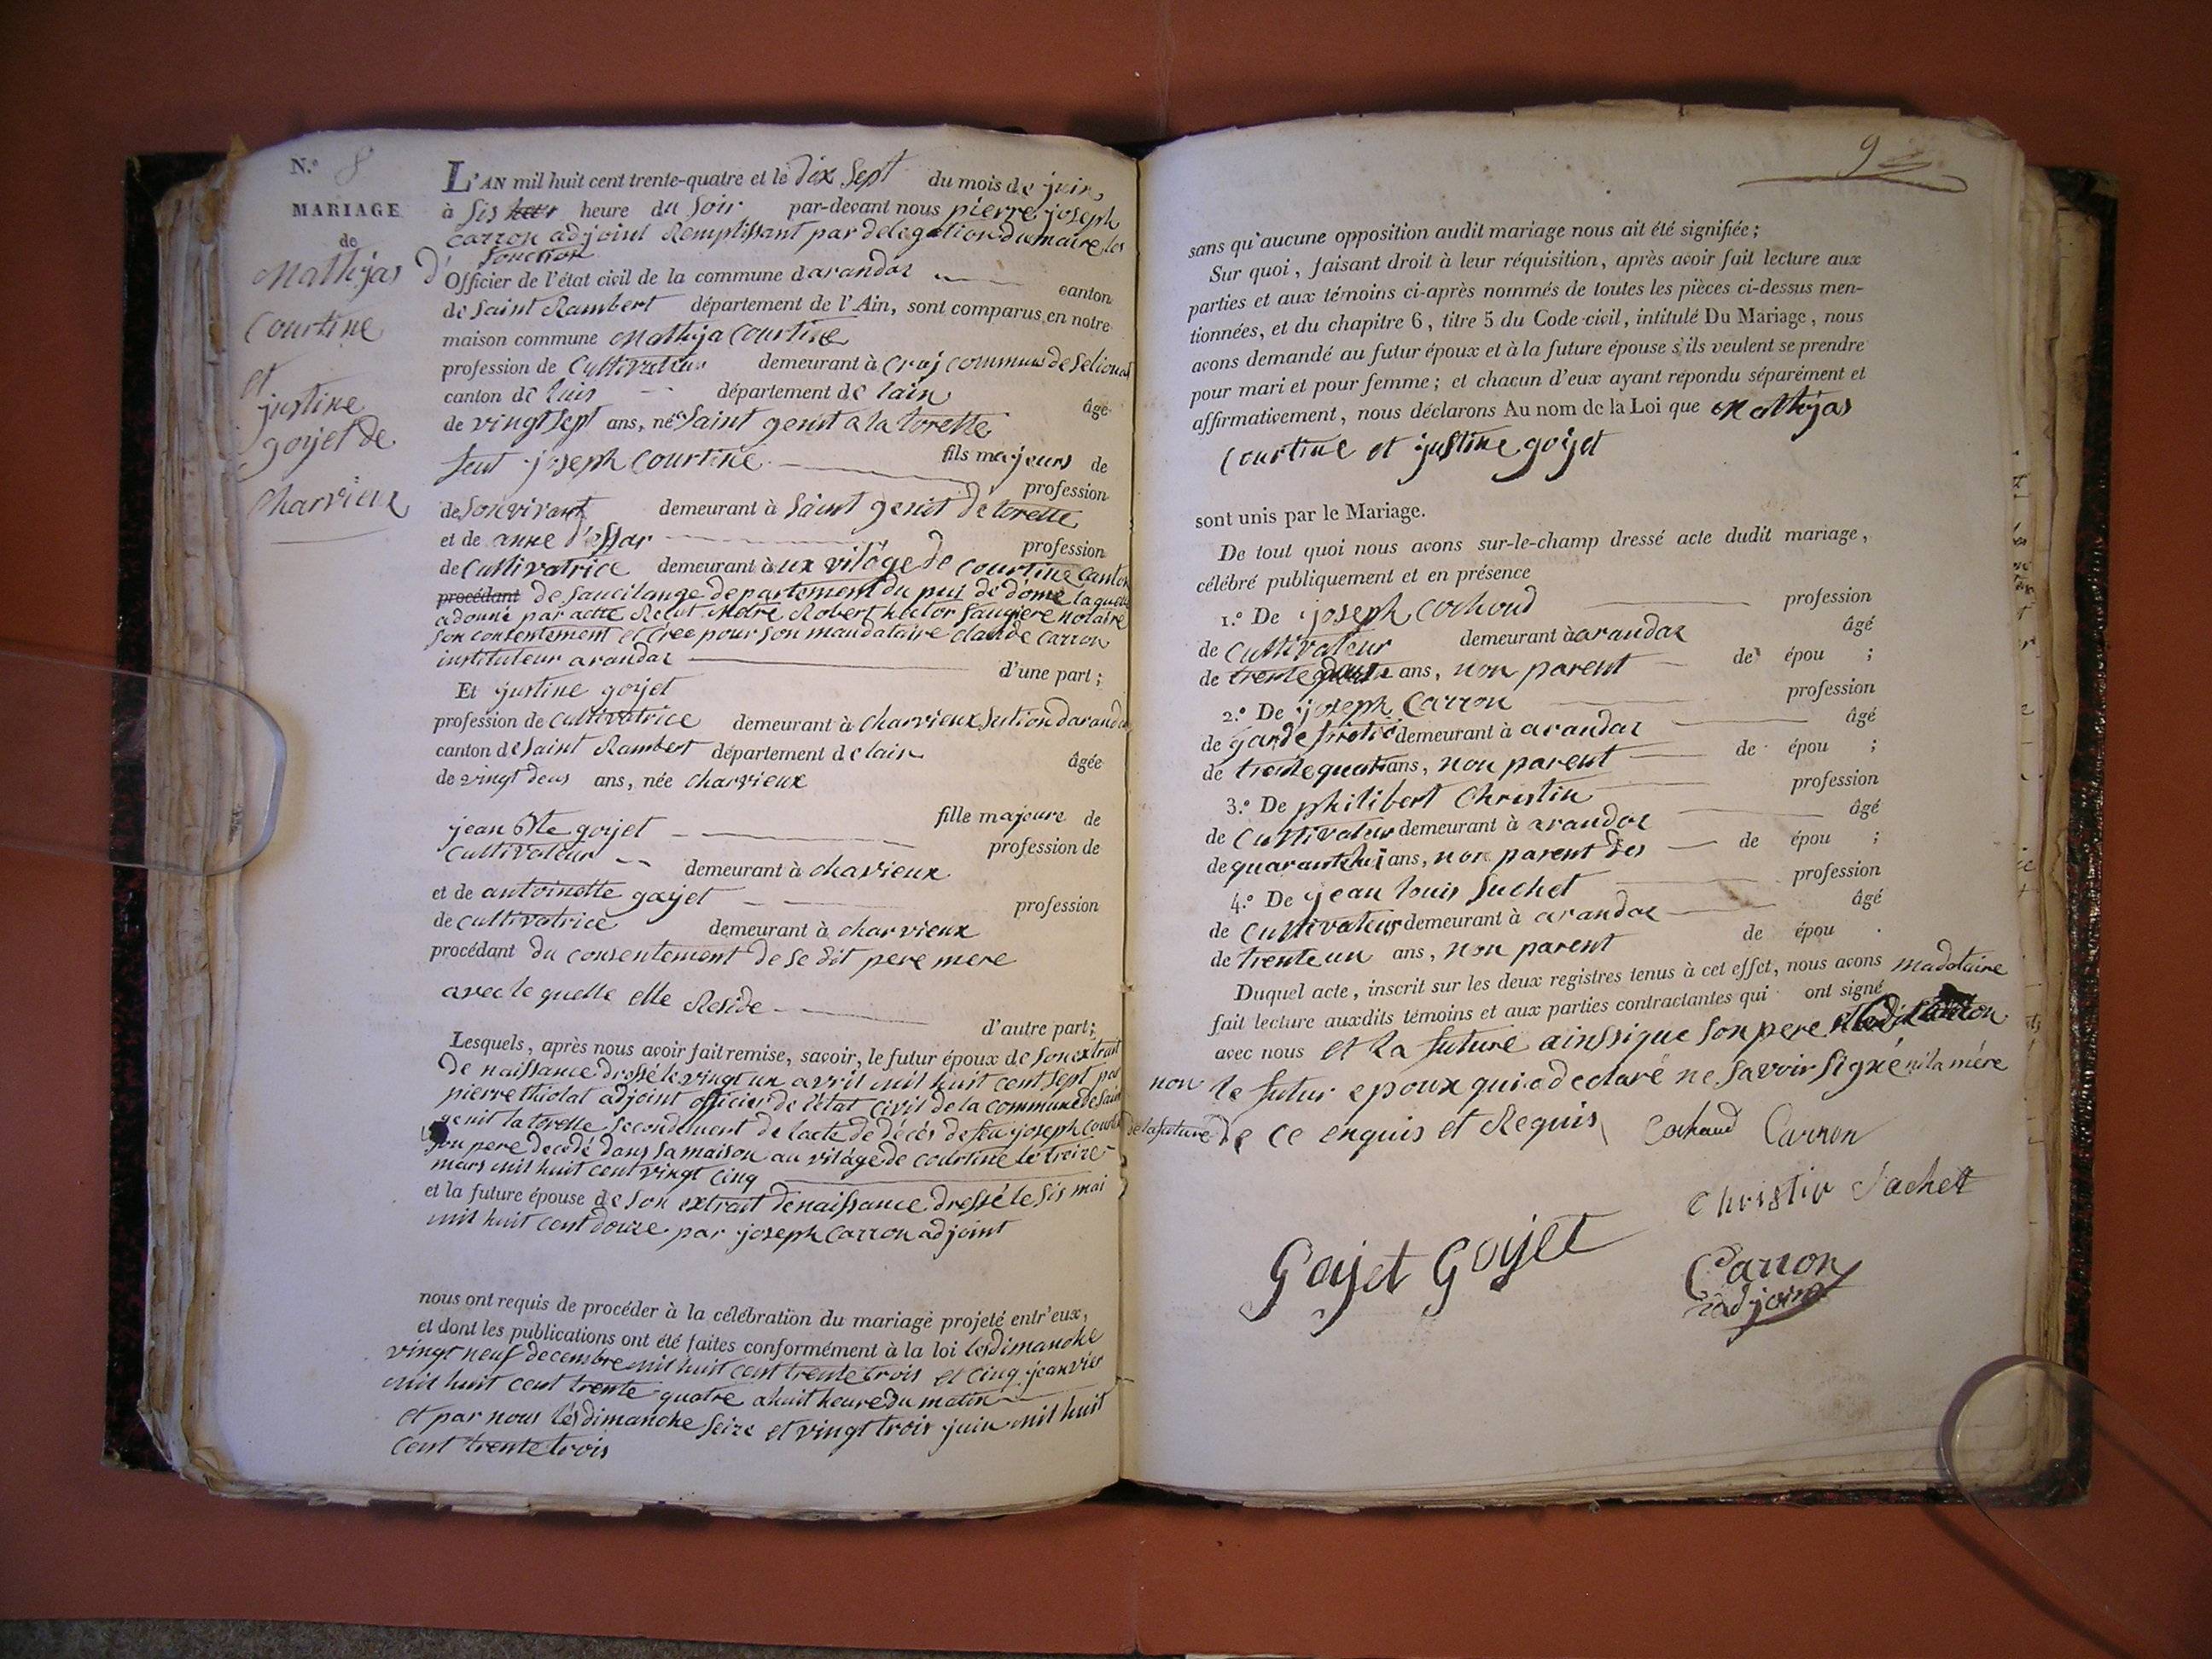 N.º 8
MARIAGE
de
Mathjas
Courtine
et
justine
goyet de
Charvieux
L'AN mil huit cent trente-quatre et le dix sept du mois de juin,
à sis heure du soir par-devant nous pierre joseph
carron adjoint Remplissant par délégation du maire les
fonction
d' Officier de l'état civil de la commune d'arandas canton
de Saint Rambert département de l'Ain, sont comparus en notre
maison commune Mathja Courtine
profession de Cultivateur demeurant à craj commune de
canton de luis département de lain
de vingt sept ans, né Saint genit a la torette âgé
feut joseph Courtine fils majeurs de
profession
de sonvivant demeurant à Saint genit de torette
et de anne dessar profession
de Cultivatrice demeurant à ux vilage de courtine canton
procédant de Saucilange departement du pui de dome laquelle
a donné par acte Recut Robert hector Saugiere notaire
son consentement et créé pour son mandataire claude carron
instituteur arandaz d'une part;
Et justine goyet
profession de cultivatrice demeurant à charvieux section daranda
canton de Saint Rambert département de lain
de vingt deus ans, née charvieux âgée
fille majeure de
jean Bte goyet profession de
Cultivateur demeurant à chavieux
et de antoinette gayet profession
de cultivatrice demeurant à charvieux
procédant du consentement de se dit pere mere
avec le quelle elle Reside
d'autre part;
Lesquels, après nous avoir fait remise, savoir, le futur époux de son extrait
de naissance dressé le vingt un avril mil huit cent sept par
pierre thiolat adjoint officier de l'état civil de la commune de Saint
genit la torette Secondement de lacte de décés de feu joseph Courtine
son pere decedé dans sa maison au vilage de courtine le treize
mars mil huit cent vingt cinq
et la future épouse de son extrait de naissance dressé le sis mai
mil huit cent douze par joseph Carron adjoint
nous ont requis de procéder à la célébration du mariage projeté entr'eux,
et dont les publications ont été faites conformément à la loi les dimanche
vingt neuf decembre mil huit cent trente trois et cinq jeanvier
mil huit cent trente quatre a huit heure du matin
et par nous les dimanche seize et vingt trois juin mil huit
cent trente trois
9
sans qu'aucune opposition audit mariage nous ait été signifiée;
Sur quoi, faisant droit à leur réquisition, après avoir fait lecture aux
parties et aux témoins ci-après nommés de toutes les pièces ci-dessus men-
tionnées, et du chapitre 6, titre 5 du Code civil, intitulé Du Mariage, nous
avons demandé au futur époux et à la future épouse s'ils veulent se prendre
pour mari et pour femme; et chacun d'eux ayant répondu séparément et
affirmativement, nous déclarons Au nom de la Loi que Mathjas
Courtine et justine goyet
sont unis par le Mariage.
De tout quoi nous avons sur-le-champ dressé acte dudit mariage,
célébré publiquement et en présence
1.º De joseph Cochoud profession
de Cultivateur demeurant à arandaz âgé
de trente ans, non parent de épou ;
2.º De joseph Carron profession
de garde demeurant à arandaz âgé
de trente quatr ans, non parent de épou ;
3.º De philibert Christin profession
de Cultivateur demeurant à arandaz âgé
de quarante hui ans, non parent des de épou ;
4.º De jean louis Suchet profession
de Cultivateur demeurant à arandaz âgé
de trente un ans, non parent de épou .
Duquel acte, inscrit sur les deux registres tenus à cet effet, nous avons
fait lecture auxdits témoins et aux parties contractantes qui ont signé madotaire
avec nous et la future ainssi que son pere
non le futur epoux qui a declaré ne savoir signé ni la mère
de la future de ce enquis et Requis Cochaud Carron
Christin Sachet
Gojet Gojet
Carron
adjoint